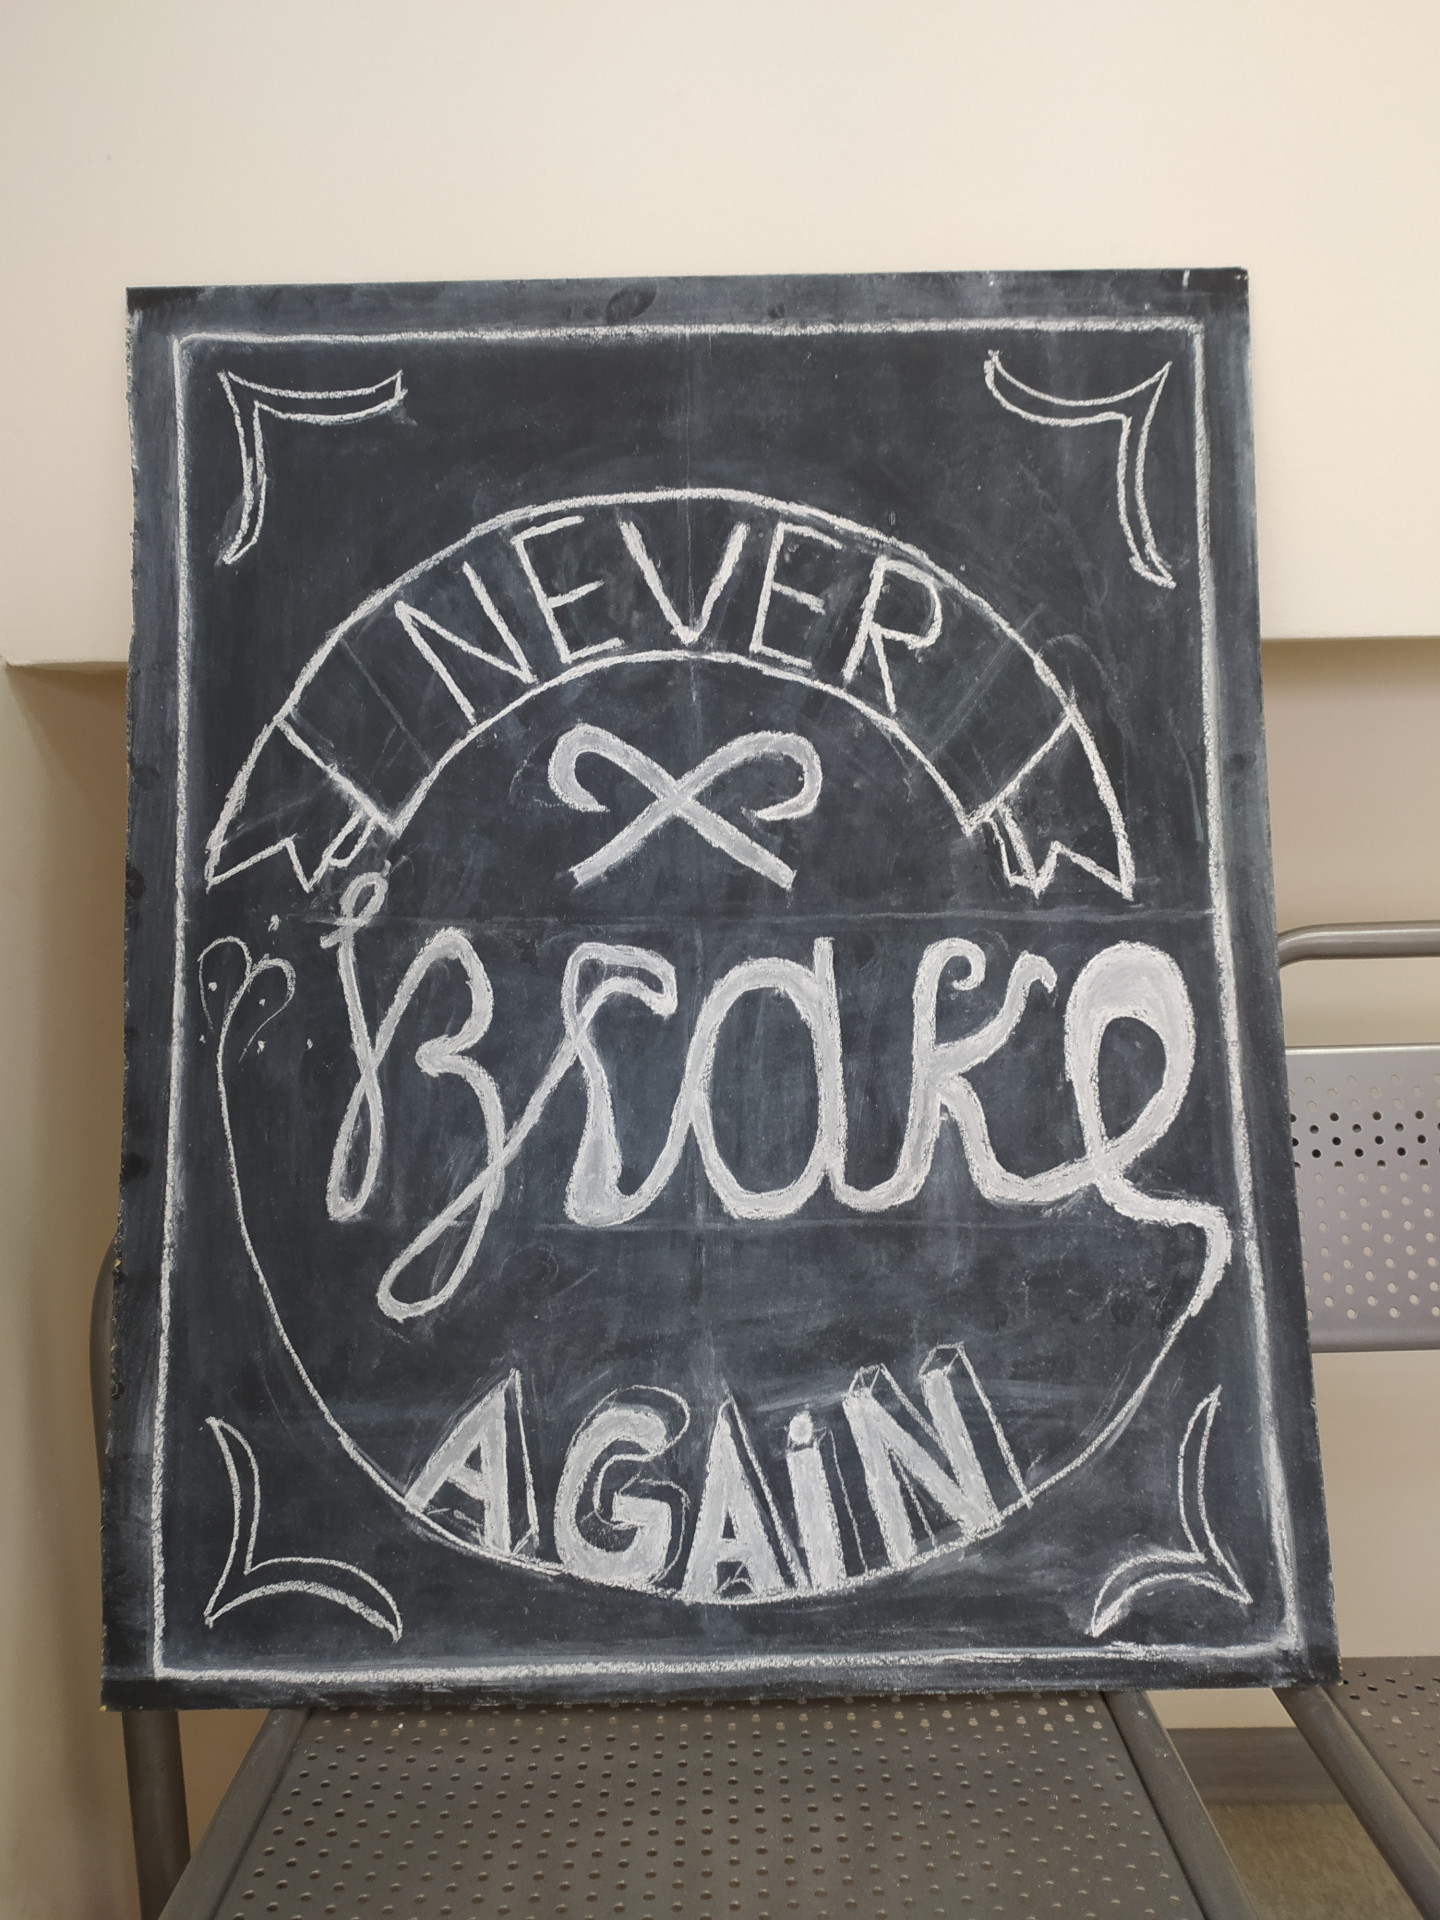 NEVER
Brake
AGAiN